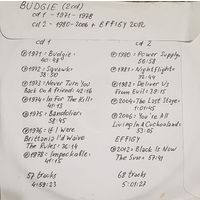 BUDGIE (2cd)
cd 1 - 1971 - 1978
cd 2 - 1980 - 2006 + EFFIGY 2012
cd 1
℗1971 - Budgie -
40:48
℗1972 - Squawk -
38:50
℗1973 - Never Turn You
Back On A Friend: 42:16
℗1974 - In For The Kill -
41:13
℗1975 - Bandolier -
38:45
℗1976 - If I Were
Brittania I'd Waive
The Rules: 36:14
℗1978 - Impeckable:
41:15
57 tracks
4:59:23
cd 2
℗1980 - Power Supply.
56:58
℗1981 - Nightflight:
℗1982 - Deliver Us
From Evil: 38:15
℗2004 - The Last Stage:
1:01:45
℗2006 - You're All
Living In Cuckooland:
53:05
EFFIGY
℗2012 - Black Is Now
The Sun - 47:41
68 tracks
5:01:23